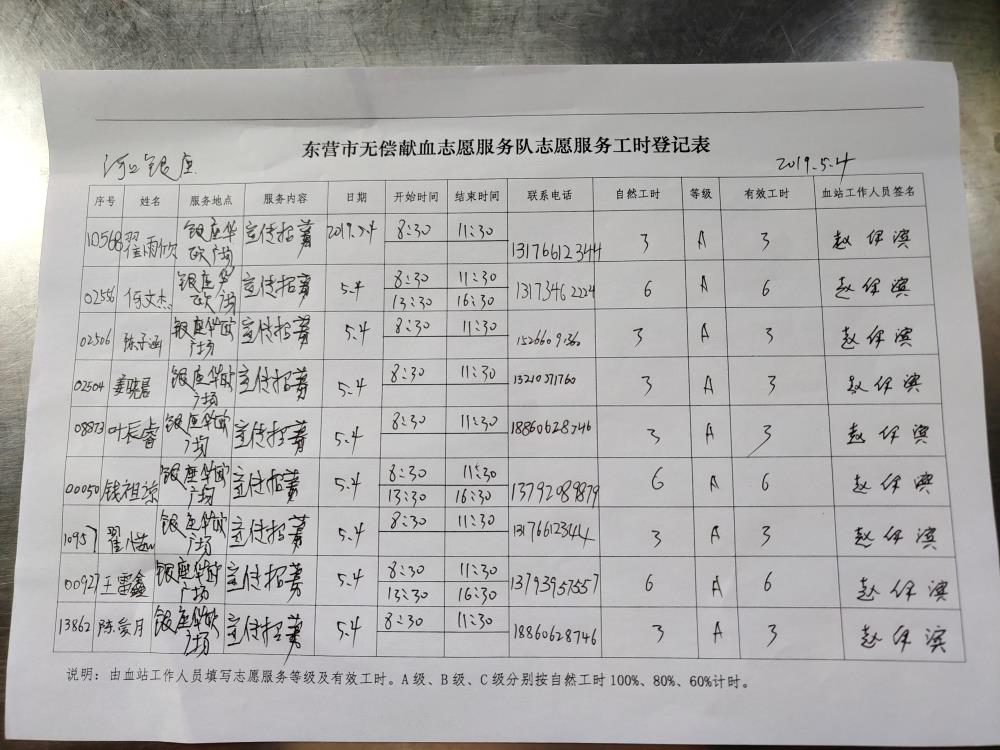 东营市无偿献血志愿服务队志愿服务工时登记表
河口银座 2019.5.4
序号 姓名 服务地点 服务内容 日期 开始时间 结束时间 联系电话 自然工时 等级 有效工时 血站工作人员签名
10568 翟雨欣 银座华欧广场 宣传招募 2019.5.4 8:30 11:30 13176612344 3 A 3
02556 何文杰 银座华欧广场 宣传招募 5.4 8:30 11:30 13173462224 6 A 6
13:30 16:30
02506 陈子涵 银座华欧广场 宣传招募 5.4 8:30 11:30 3 A 3
02504 姜晓君 银座华欧广场 宣传招募 5.4 8:30 11:30 13210371760 3 A 3
08873 叶辰睿 银座华欧广场 宣传招募 5.4 8:30 11:30 18860628746 3 A 3
00050 钱祖谅 银座华欧广场 宣传招募 5.4 8:30 11:30 13792089879 6 A 6
13:30 16:30
10957 银座华欧广场 宣传招募 5.4 8:30 11:30 13176612344 3 A 3
00927 王雷鑫 银座华欧广场 宣传招募 5.4 8:30 11:30 13793957557 6 A 6
13:30 16:30
13862 陈爱月 银座华欧广场 宣传招募 5.4 8:30 11:30 18860628746 3 A 3
说明：由血站工作人员填写志愿服务等级及有效工时。A级、B级、C级分别按自然工时100%、80%、60%计时。